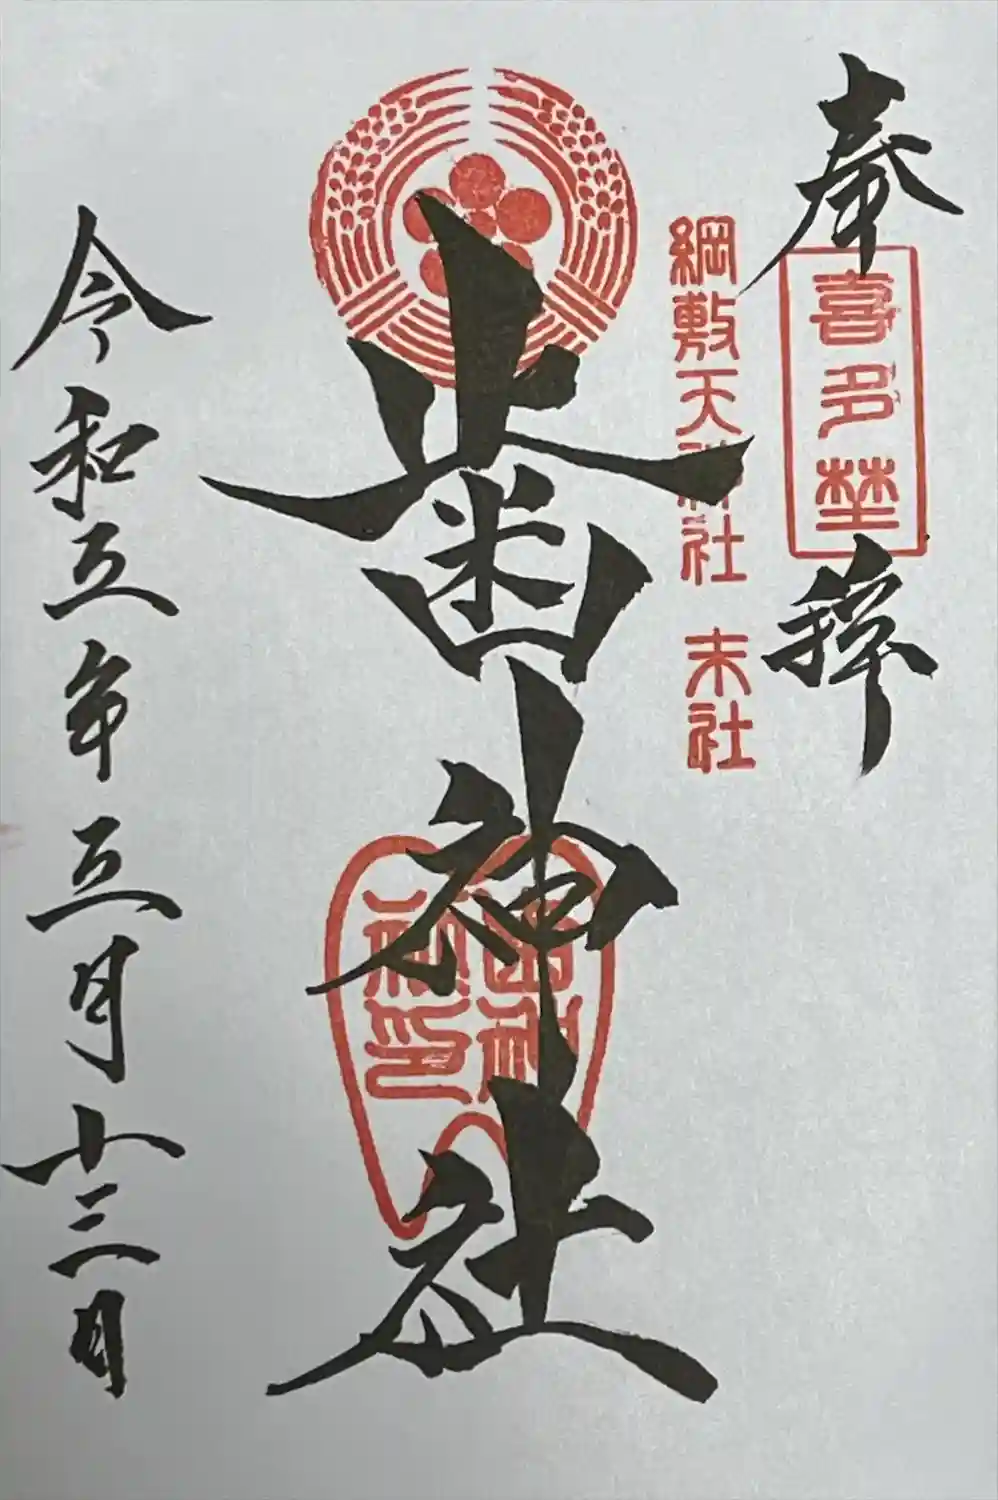 奉拝
喜多埜
綱敷天神社 末社
歯神社
歯神社印
令和五年五月十三日